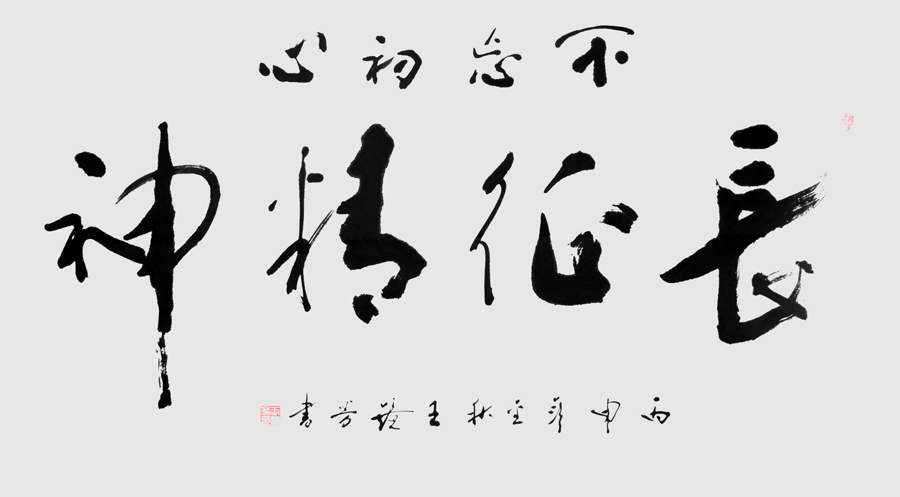 不忘初心
長征精神
丙申年金秋王芳書